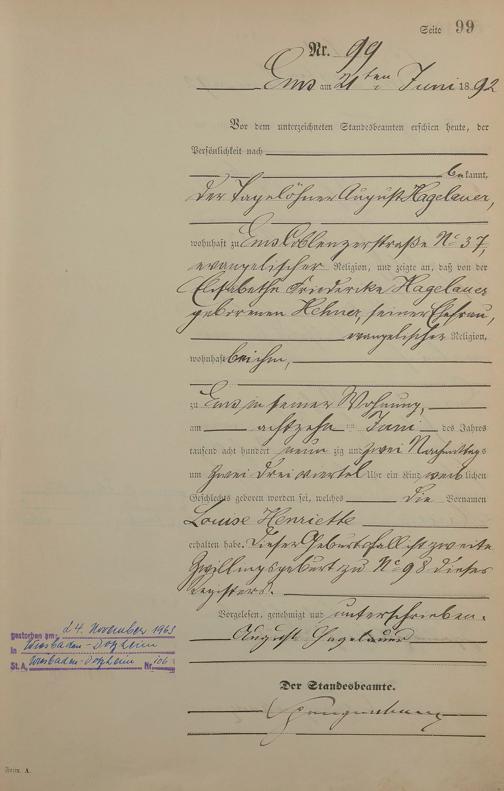 Seite 99
Nr. 99
Ems am 21ten Juni 1892
Vor dem unterzeichneten Standesbeamten erschien heute, der
Persönlichkeit nach
bekannt,
der Tagelöhner August Hagelauer,
wohnhaft zu Ems Coblenzerstraße No 37,
evangelischer Religion, und zeigte an, daß von der
Elisabethe Friedericke Hagelauer
geborenen Hehner, seiner Ehefrau,
evangelischer Religion,
wohnhaft bei ihm,
zu Ems in seiner Wohnung,
am achtzehn ten Juni des Jahres
tausend acht hundert neun zig und zwei Nachmittags
um zwei drei viertel Uhr ein Kind weiblichen
Geschlechts geboren worden sei, welches die Vornamen
Louise Henriette
erhalten habe. Dieser Geburtsfall ist zweite
Zwillingsgeburt zu No 98 dieses
Registers.
Vorgelesen, genehmigt und unterschrieben.
August Hagelauer
Der Standesbeamte.
gestorben am: 24. November 1965
in Wiesbaden-Dotzheim
St. A. Wiesbaden-Dotzheim Nr. 106
Form. A.